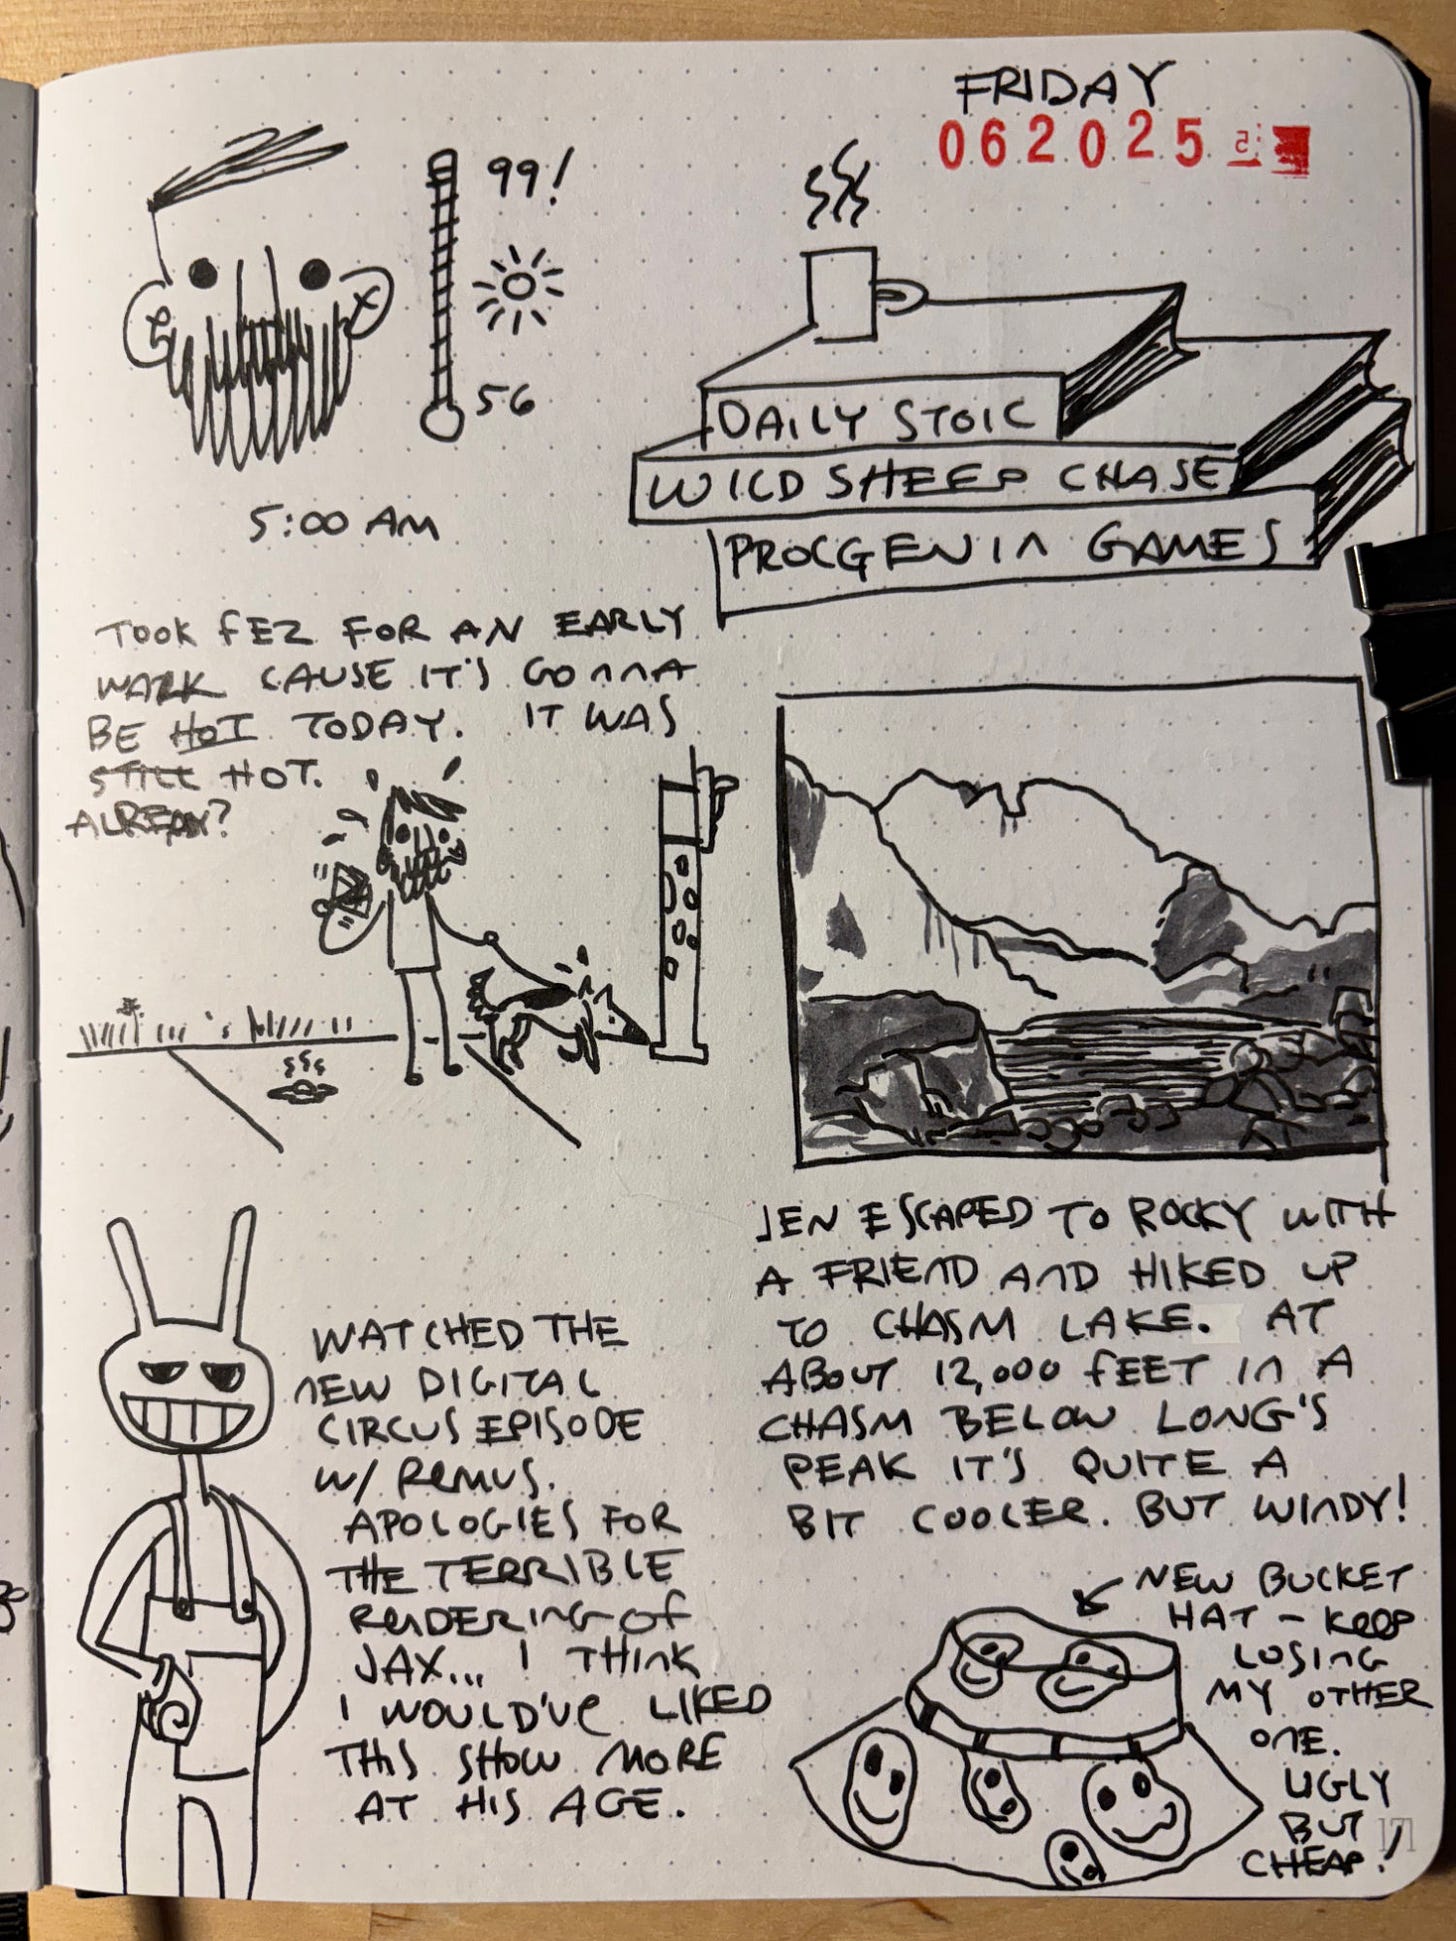 FRIDAY
062025
99!
56
5:00 AM
DAILY STOIC
WILD SHEEP CHASE
PROCGEN IN GAMES
TOOK FEZ FOR AN EARLY
WALK CAUSE IT'S GONNA
BE HOT TODAY. IT WAS
STILL HOT.
ALREADY?
JEN ESCAPED TO ROCKY WITH
A FRIEND AND HIKED UP
TO CHASM LAKE. AT
ABOUT 12,000 FEET IN A
CHASM BELOW LONG'S
PEAK IT'S QUITE A
BIT COOLER. BUT WINDY!
WATCHED THE
NEW DIGITAL
CIRCUS EPISODE
W/ REMUS.
APOLOGIES FOR
THE TERRIBLE
RENDERING OF
JAX... I THINK
I WOULD'VE LIKED
THIS SHOW MORE
AT HIS AGE.
NEW BUCKET
HAT - KEEP
LOSING
MY OTHER
ONE.
UGLY
BUT
CHEAP!
171